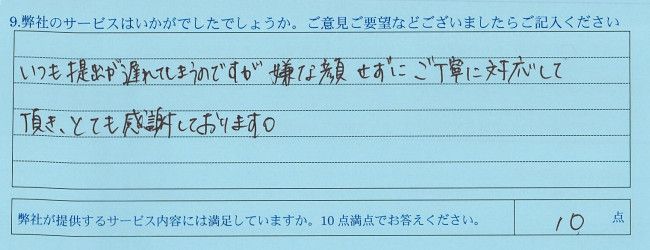 9.弊社のサービスはいかがでしたでしょうか。ご意見ご要望などございましたらご記入ください
いつも提出が遅れてしまうのですが 嫌な顔せずに ご丁寧に対応して
頂き、とても感謝しております。
弊社が提供するサービス内容には満足していますか。10点満点でお答えください。 10 点